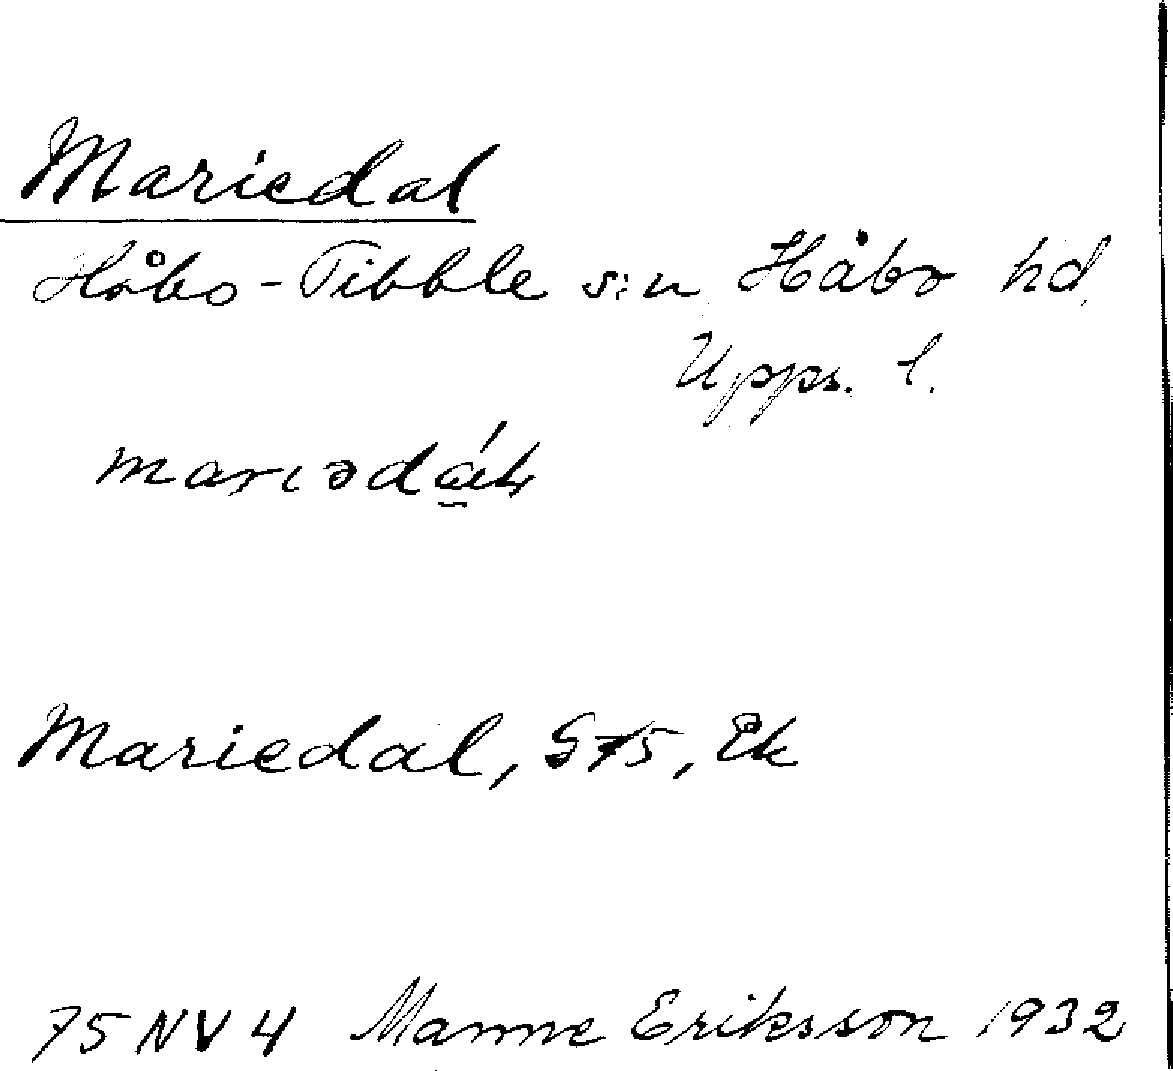 Mariedal
Håbo-Tibble s:n Håbo hd.
Upps. l.
Mariedal, G75, Ek
75 NV 4 Manne Eriksson 1932